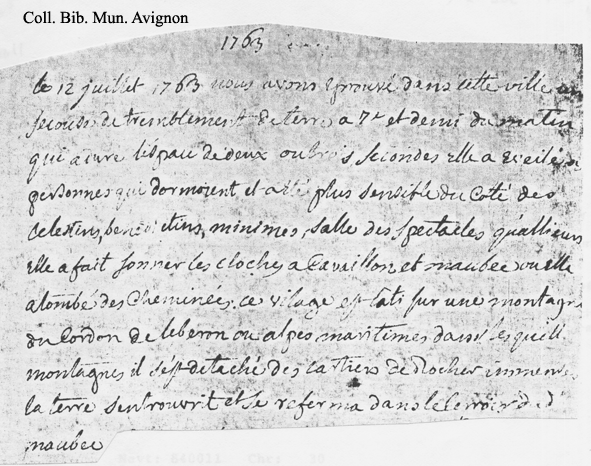 Coll. Bib. Mun. Avignon
1763
le 12 juillet 1763 nous avons eprouvé dans cette ville
secousse de tremblement de terre a 7h et demi du matin
qui a duré l'espace de deux ou trois secondes elle a eveilé
personnes qui dormoient et a été plus sensible du coté des
celestins, benedictins, minimes, salle des spectacles qu'allieurs
elle a fait sonner les cloches a Cavaillon et maubec ou elle
a tombé des cheminées. ce vilage est bati sur une montagne
du Cordon de leberon ou alpes maritimes dans lesquell
montagnes il s'est detaché des cartiers de Rocher immenses
la terre s'entrouvrit et se referma dans le terroir
maubec